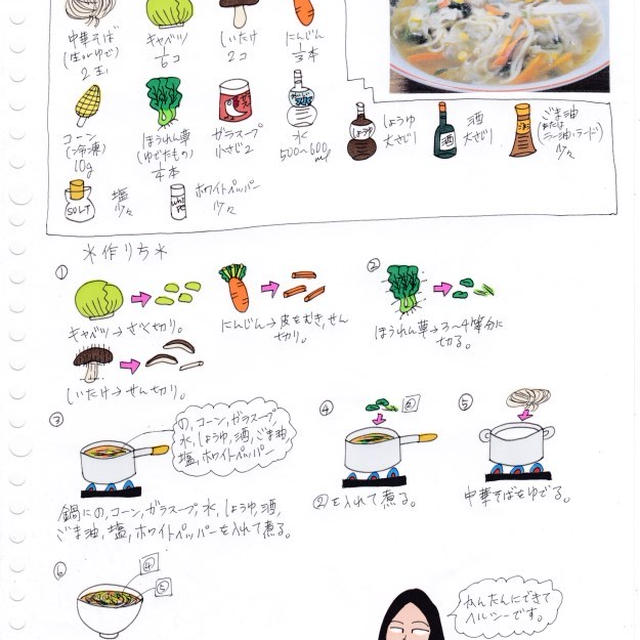 中華そば キャベツ しいたけ にんじん
(生orゆで) 1/6コ 2コ 1/3本
2玉
コーン ほうれん草 ガラスープ 水 しょうゆ 酒 ごま油
(冷凍) (ゆでたもの) 小さじ2 500〜600 大さじ1 大さじ1 (または
10g 1/4本 ml ラー油・ラード)
少々
しょうゆ
酒
SOLT 塩 ホワイトペッパー
少々 少々
＊作り方＊
① ②
キャベツ→ざく切り。
にんじん→皮をむき,せん
切り。
ほうれん草→3〜4等分に
切る。
しいたけ→せん切り。
③
の,コーン,ガラスープ,
水,しょうゆ,酒,ごま油
塩,ホワイトペッパー
④ ② ⑤
鍋にの,コーン,ガラスープ,水,しょうゆ,酒,
ごま油,塩,ホワイトペッパーを入れて煮る。
②を入れて煮る。
中華そばをゆでる。
⑥
④
⑤
かんたんにできて
ヘルシーです。